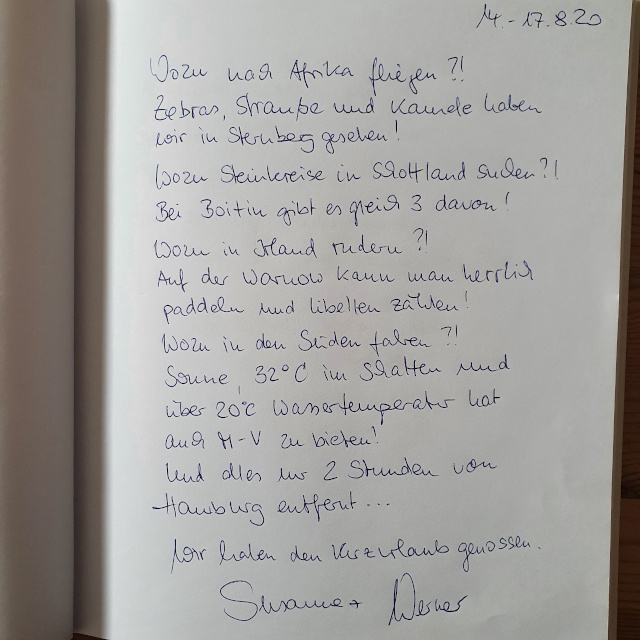 14.-17.8.20
Wozu nach Afrika fliegen?!
Zebras, Strauße und Kamele haben
wir in Sternberg gesehen!
Wozu Steinkreise in Schottland suchen?!
Bei Boitin gibt es gleich 3 davon!
Wozu in Irland rudern?!
Auf der Warnow kann man herrlich
paddeln und Libellen zählen!
Wozu in den Süden fahren?!
Sonne, 32°C im Schatten und
über 20°C Wassertemperatur hat
auch M-V zu bieten!
Und alles nur 2 Stunden von
Hamburg entfernt...
Wir haben den Kurzurlaub genossen.
Susanne + Werner